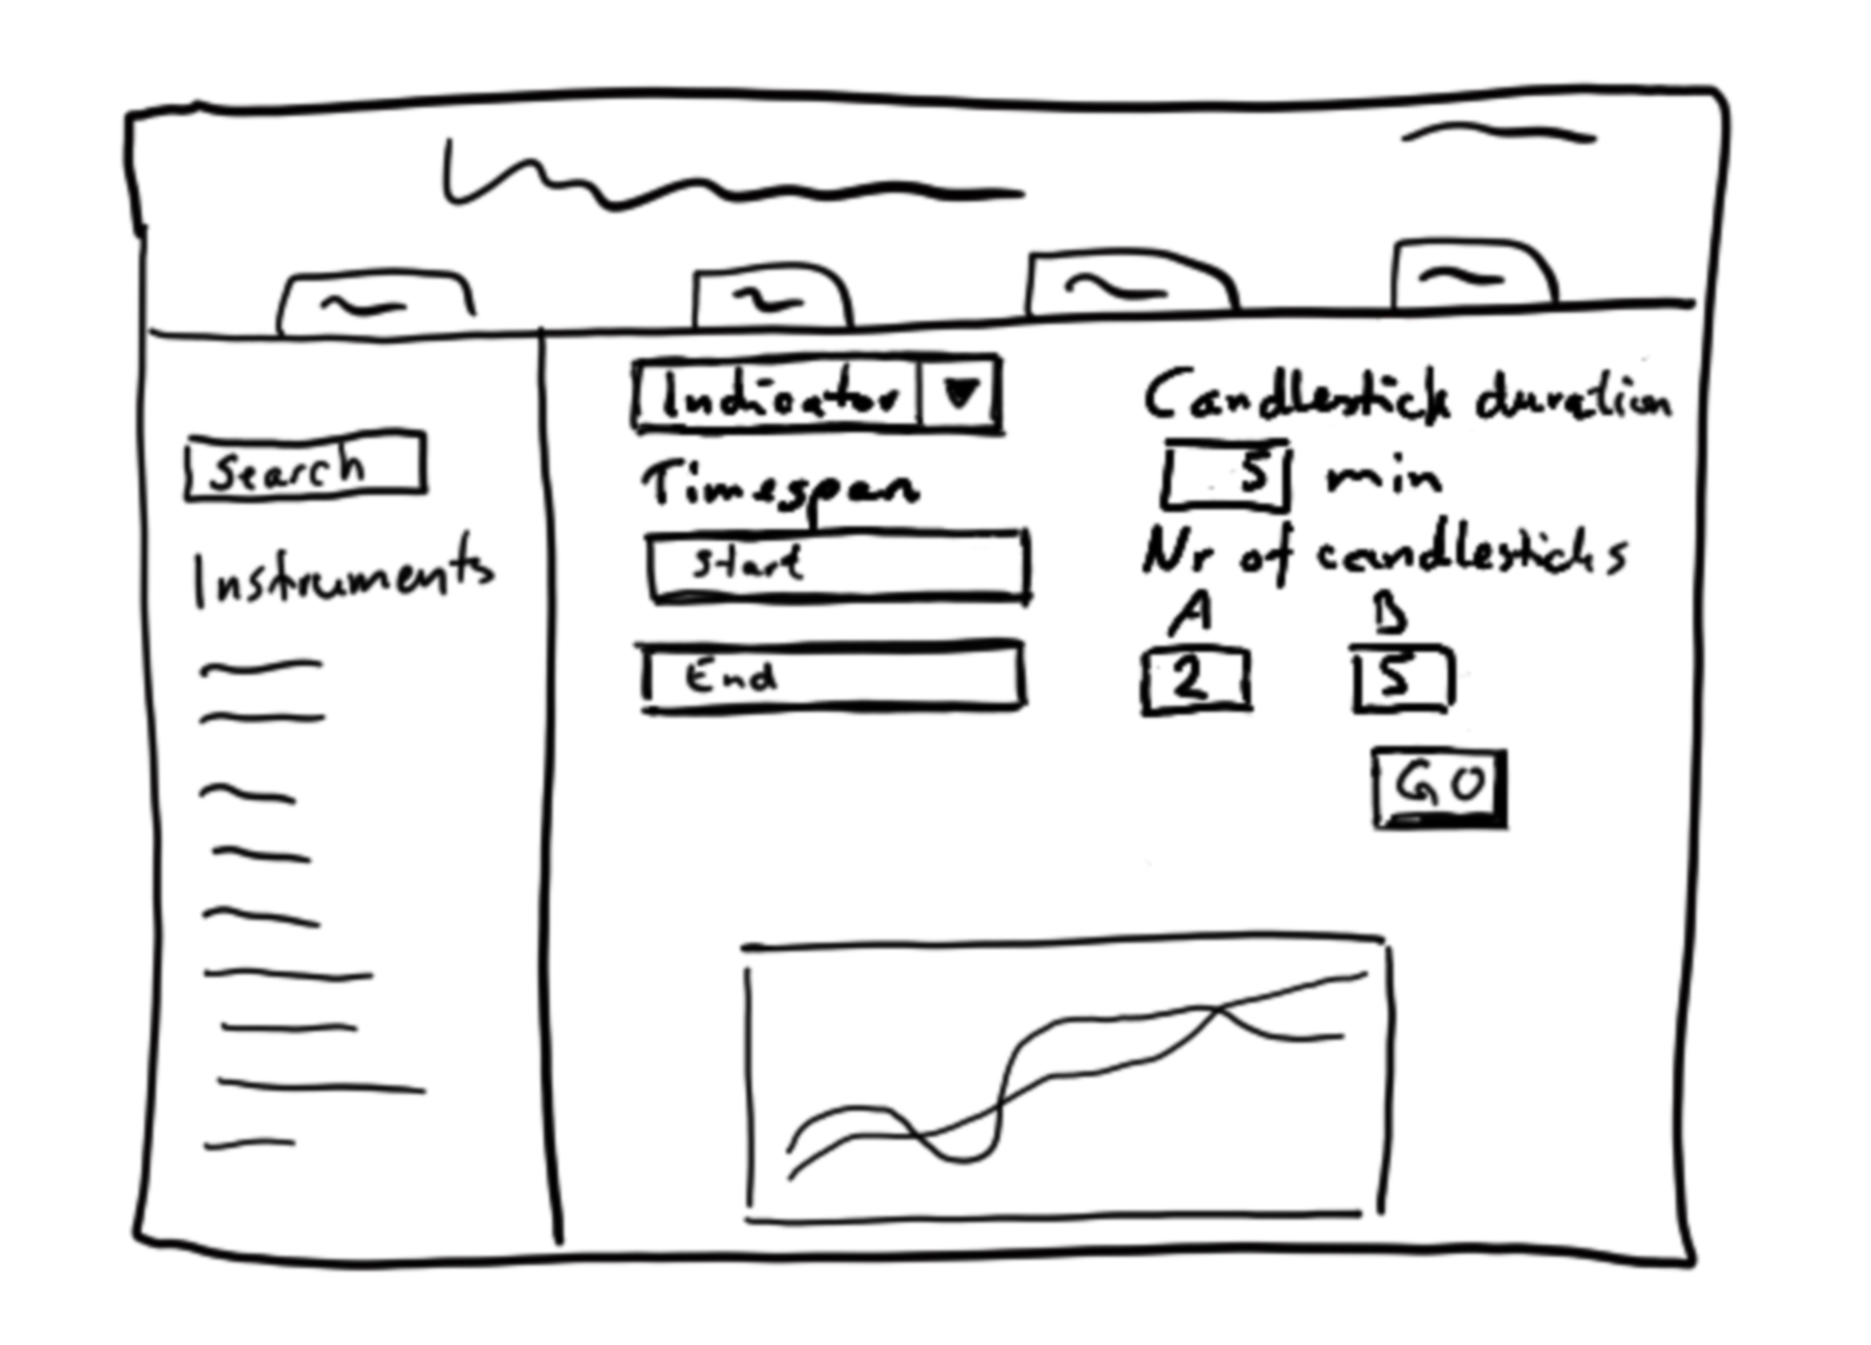 Search
Instruments
Indicator
Timespan
Start
End
Candlestick duration
5 min
Nr of candlesticks
A B
2 5
GO